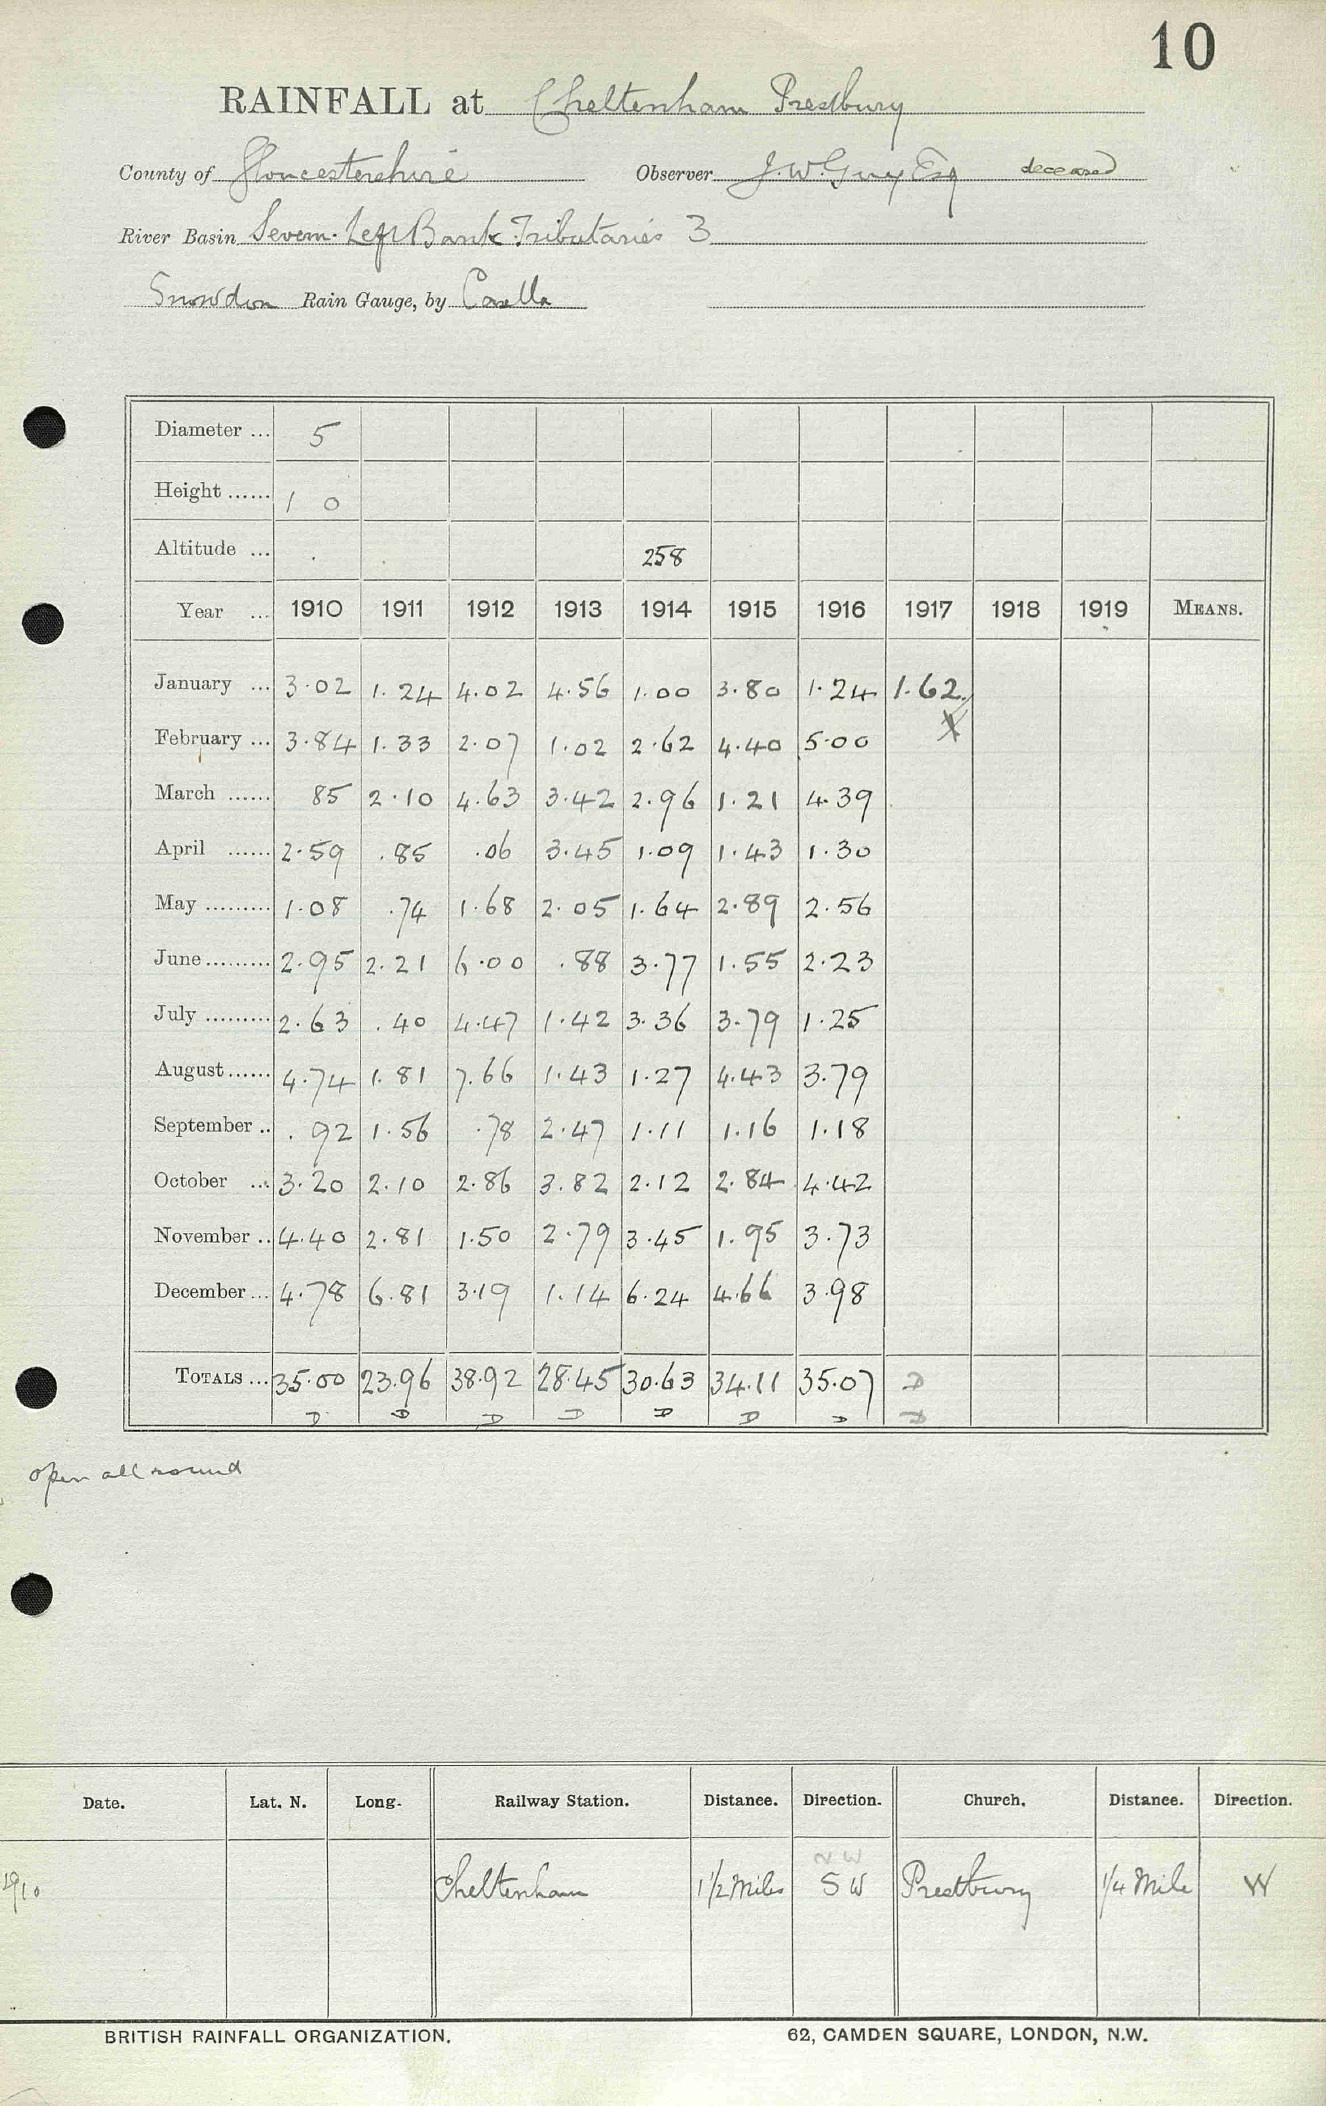 10
RAINFALL at Cheltenham Prestbury
County of Gloucestershire Observer J. W. Guy Esq deceased
River Basin Severn. Left Bank Tributaries 3
Snowdon Rain Gauge, by Casella
Diameter ... 5
Height ...... 1 0
Altitude ... 258
Year ... 1910 1911 1912 1913 1914 1915 1916 1917 1918 1919 MEANS.
January ... 3.02 1.24 4.02 4.56 1.00 3.80 1.24 1.62
February ... 3.84 1.33 2.07 1.02 2.62 4.40 5.00 X
March ...... 85 2.10 4.63 3.42 2.96 1.21 4.39
April ...... 2.59 .85 .06 3.45 1.09 1.43 1.30
May ......... 1.08 .74 1.68 2.05 1.64 2.89 2.56
June ......... 2.95 2.21 6.00 .88 3.77 1.55 2.23
July ......... 2.63 .40 4.47 1.42 3.36 3.79 1.25
August ...... 4.74 1.81 7.66 1.43 1.27 4.43 3.79
September .. .92 1.56 .78 2.47 1.11 1.16 1.18
October ... 3.20 2.10 2.86 3.82 2.12 2.84 4.42
November .. 4.40 2.81 1.50 2.79 3.45 1.95 3.73
December ... 4.78 6.81 3.19 1.14 6.24 4.66 3.98
TOTALS ... 35.00 23.96 38.92 28.45 30.63 34.11 35.07 D
D D D D D D D D
open all round
Date. Lat. N. Long. Railway Station. Distance. Direction. Church. Distance. Direction.
NW
1910 Cheltenham 1 1/2 Miles SW Prestbury 1/4 Mile W
BRITISH RAINFALL ORGANIZATION. 62, CAMDEN SQUARE, LONDON, N.W.